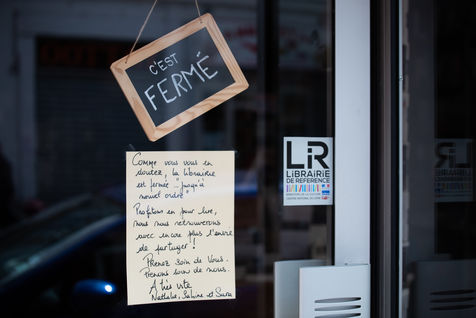 C'EST
FERMÉ
Comme vous vous en
doutez, la librairie
est fermée... jusqu'à
nouvel ordre.
Profitons en pour lire,
nous nous retrouverons
avec encore plus l'envie
de partager !
Prenez soin de Vous.
Prenons soin de nous.
A très vite
Nathalie, Sabine et Sara
LiR
LIBRAIRIE
DE RÉFÉRENCE
MINISTÈRE DE LA CULTURE
CENTRE NATIONAL DU LIVRE